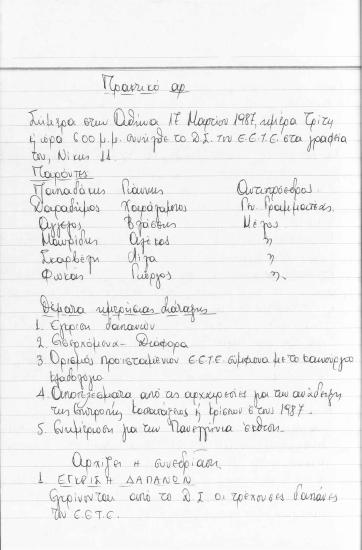 Πρακτικό αρ
Σήμερα στην Αθήνα 17 Μαρτίου 1987, ημέρα Τρίτη
ή ώρα 6.00 μ.μ. συνήλθε το Δ.Σ. του Ε.Ε.Τ.Ε. στα γραφεία
του, Νίκης 11.
Παρόντες
Παπαδάκης Γιάννης Αντιπρόεδρος
Δαραδήμος Χαράλαμπος Γεν. Γραμματέας
Αγγέλος Βλάσσης Μέλος
Μαυρίδης Αλέκος η
Σκαρβέλη Λίζα η
Φωκάς Γιώργος η
Θέματα ημερήσιας διάταξης
1. Έγκριση δαπανών
2. Εισερχόμενα - Διάφορα
3 Ορισμός προϊσταμένων Ε.Ε.Τ.Ε. σύμφωνα με το καινούργιο
μισθολόγιο
4. Αποτελέσματα από τις αρχαιρεσίες για την ανάδειξη
της Επιτροπής κατατάξεως ή κρίσεων έτους 1987.
5. Ενημέρωση για την Πανελλήνια έκθεση.
Αρχίζει η συνεδρίαση
1. ΕΓΚΡΙΣΗ ΔΑΠΑΝΩΝ
Εγκρίνονται από το Δ.Σ οι τρέχουσες δαπάνες
του Ε.Ε.Τ.Ε.